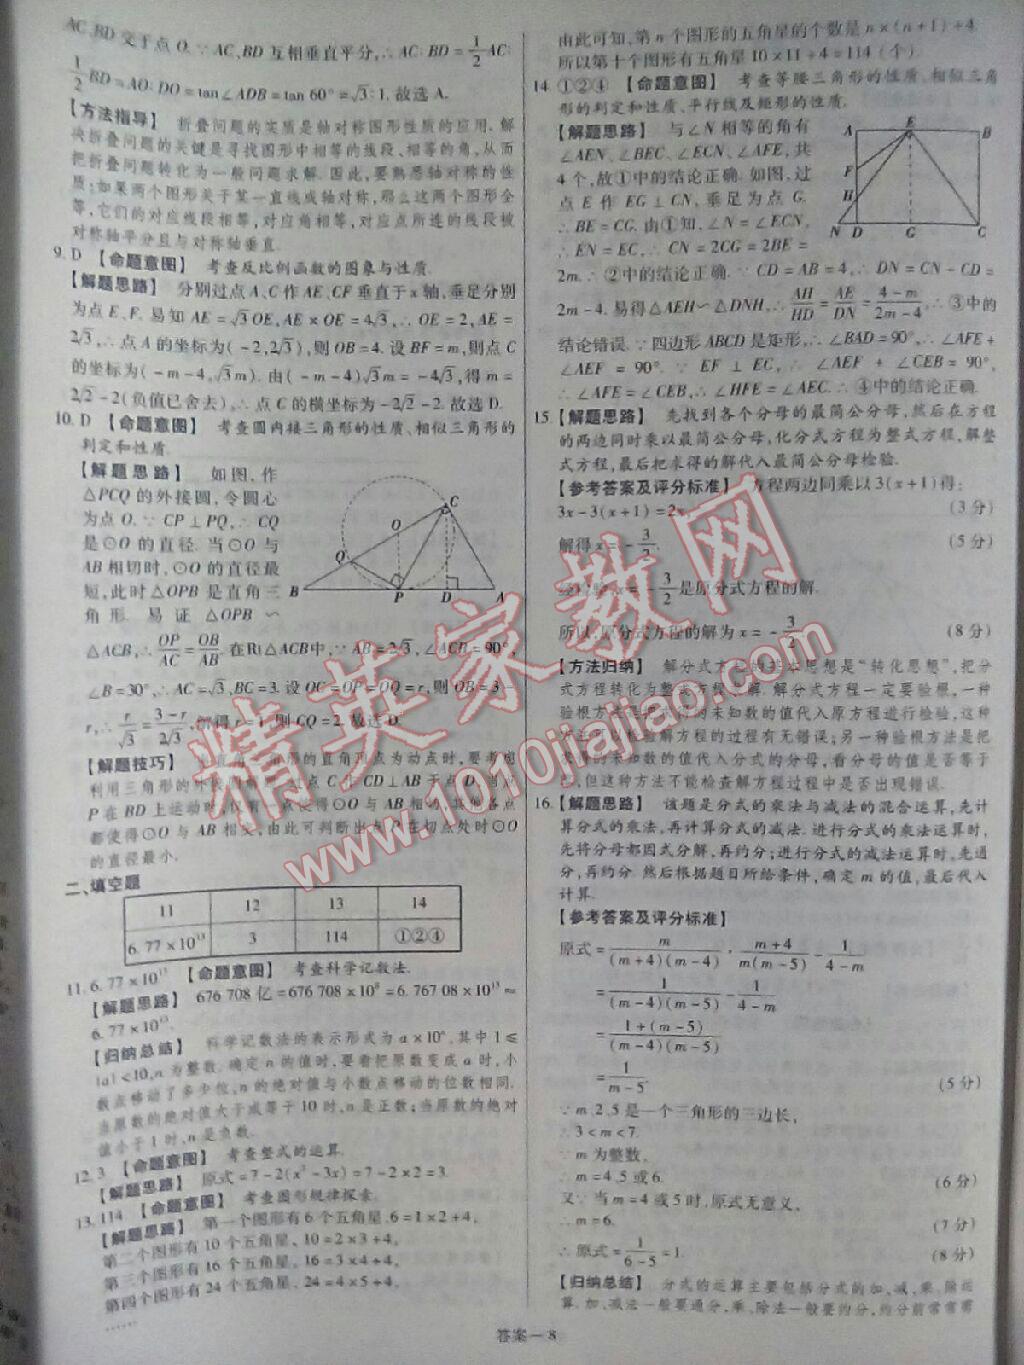 AC、BD交于点O.∵AC、BD互相垂直平分,∴AC:BD=1/2AC:
1/2BD=AO:DO=tan∠ADB=tan60°=√3:1.故选A.
【方法指导】 折叠问题的实质是轴对称图形性质的应用.解
决折叠问题的关键是寻找图形中相等的线段、相等的角,从而
把折叠问题转化为一般问题求解.因此,要熟悉轴对称的性
质:如果两个图形关于某一直线成轴对称,那么这两个图形全
等,它们的对应线段相等,对应角相等,对应点所连的线段被
对称轴平分且与对称轴垂直.
9. D 【命题意图】 考查反比例函数的图象与性质.
【解题思路】 分别过点A、C作AE、CF垂直于x轴,垂足分别
为点E、F.易知AE=√3OE,AE×OE=4√3,∴OE=2,AE=
2√3,∴点A的坐标为(-2,2√3),则OB=4.设BF=m,则点C
的坐标为(-m-4,√3m).由(-m-4)√3m=-4√3,得m=
2√2-2(负值已舍去),∴点C的横坐标为-2√2-2.故选D.
10. D 【命题意图】 考查圆内接三角形的性质、相似三角形的
判定和性质.
【解题思路】 如图,作
△PCQ的外接圆,令圆心
为点O.∵CP⊥PQ,∴CQ
是⊙O的直径.当⊙O与
AB相切时,⊙O的直径最
短,此时△OPB是直角三
角形.易证△OPB∽
C
O
Q
B P D A
△ACB,∴OP/AC=OB/AB.在Rt△ACB中,∵AB=2√3,∠ACB=90°,
∠B=30°,∴AC=√3,BC=3.设OC=OP=OQ=r,则OB=3-
r,∴r/√3=(3-r)/2√3,解得r=1,则CQ=2.故选D.
【解题技巧】 直角三角形的直角顶点为动点时,要考虑
利用三角形的外接圆解题.过点C作CD⊥AB于点D,当点
P在BD上运动时,仅有一点使得⊙O与AB相切,其他各点
都使得⊙O与AB相交,由此可判断出点P在切点处时⊙O
的直径最小.
二、填空题
11 12 13 14
6.77×10¹³ 3 114 ①②④
11. 6.77×10¹³ 【命题意图】 考查科学记数法.
【解题思路】 676 708亿=676 708×10⁸=6.767 08×10¹³≈
6.77×10¹³.
【归纳总结】 科学记数法的表示形式为a×10ⁿ,其中1≤
|a|<10,n为整数.确定n的值时,要看把原数变成a时,小
数点移动了多少位,n的绝对值与小数点移动的位数相同.
当原数的绝对值大于或等于10时,n是正数;当原数的绝对
值小于1时,n是负数.
12. 3 【命题意图】 考查整式的运算.
【解题思路】 原式=7-2(x²-3x)=7-2×2=3.
13. 114 【命题意图】 考查图形规律探索.
【解题思路】 第一个图形有6个五角星,6=1×2+4,
第二个图形有10个五角星,10=2×3+4,
第三个图形有16个五角星,16=3×4+4,
第四个图形有24个五角星,24=4×5+4,
……
由此可知,第n个图形的五角星的个数是n×(n+1)+4.
所以第十个图形有五角星10×11+4=114(个).
14. ①②④ 【命题意图】 考查等腰三角形的性质、相似三角
形的判定和性质、平行线及矩形的性质.
【解题思路】 与∠N相等的角有
∠AEN、∠BEC、∠ECN、∠AFE,共
4个,故①中的结论正确.如图,过
点E作EG⊥CN,垂足为点G.
∴BE=CG.由①知,∠N=∠ECN,
∴EN=EC,∴CN=2CG=2BE=
A E B
F
H
N D G C
2m.∴②中的结论正确.∵CD=AB=4,∴DN=CN-CD=
2m-4.易得△AEH∽△DNH,∴AH/HD=AE/DN=(4-m)/(2m-4).∴③中的
结论错误.∵四边形ABCD是矩形,∴∠BAD=90°,∴∠AFE+
∠AEF=90°.∵EF⊥EC,∴∠AEF+∠CEB=90°,
∴∠AFE=∠CEB,∴∠HFE=∠AEC.∴④中的结论正确.
15. 【解题思路】 先找到各个分母的最简公分母,然后在方程
的两边同时乘以最简公分母,化分式方程为整式方程,解整
式方程,最后把求得的解代入最简公分母检验.
【参考答案及评分标准】 方程两边同乘以3(x+1)得:
3x-3(x+1)=2x, (3分)
解得x=-3/2. (5分)
经检验,x=-3/2是原分式方程的解.
所以,原分式方程的解为x=-3/2. (8分)
【方法归纳】 解分式方程的基本思想是“转化思想”,把分
式方程转化为整式方程求解.解分式方程一定要验根,一种
验根方法是把求得的未知数的值代入原方程进行检验,这种
方法可以检验解方程的过程有无错误;另一种验根方法是把
求得的未知数的值代入分式的分母,看分母的值是否等于
零,但这种方法不能检查解方程过程中是否出现错误.
16. 【解题思路】 该题是分式的乘法与减法的混合运算,先计
算分式的乘法,再计算分式的减法.进行分式的乘法运算时,
先将分母都因式分解,再约分;进行分式的减法运算时,先通
分,再约分.然后根据题目所给条件,确定m的值,最后代入
计算.
【参考答案及评分标准】
原式=m/((m+4)(m-4))·(m+4)/(m(m-5))-1/(4-m)
=1/((m-4)(m-5))-1/(4-m)
=(1+(m-5))/((m-4)(m-5))
=1/(m-5). (5分)
∵m,2,5是一个三角形的三边长,
∴3<m<7.
∵m为整数,
∴m=4,5或6. (6分)
又∵当m=4或5时,原式无意义,
∴m=6. (7分)
∴原式=1/(6-5)=1. (8分)
【归纳总结】 分式的运算主要包括分式的加、减、乘、除运
算.加、减法一般要通分,乘、除法一般要约分,约分前常常需
答案—8
精英家教网
www.1010jiajiao.com